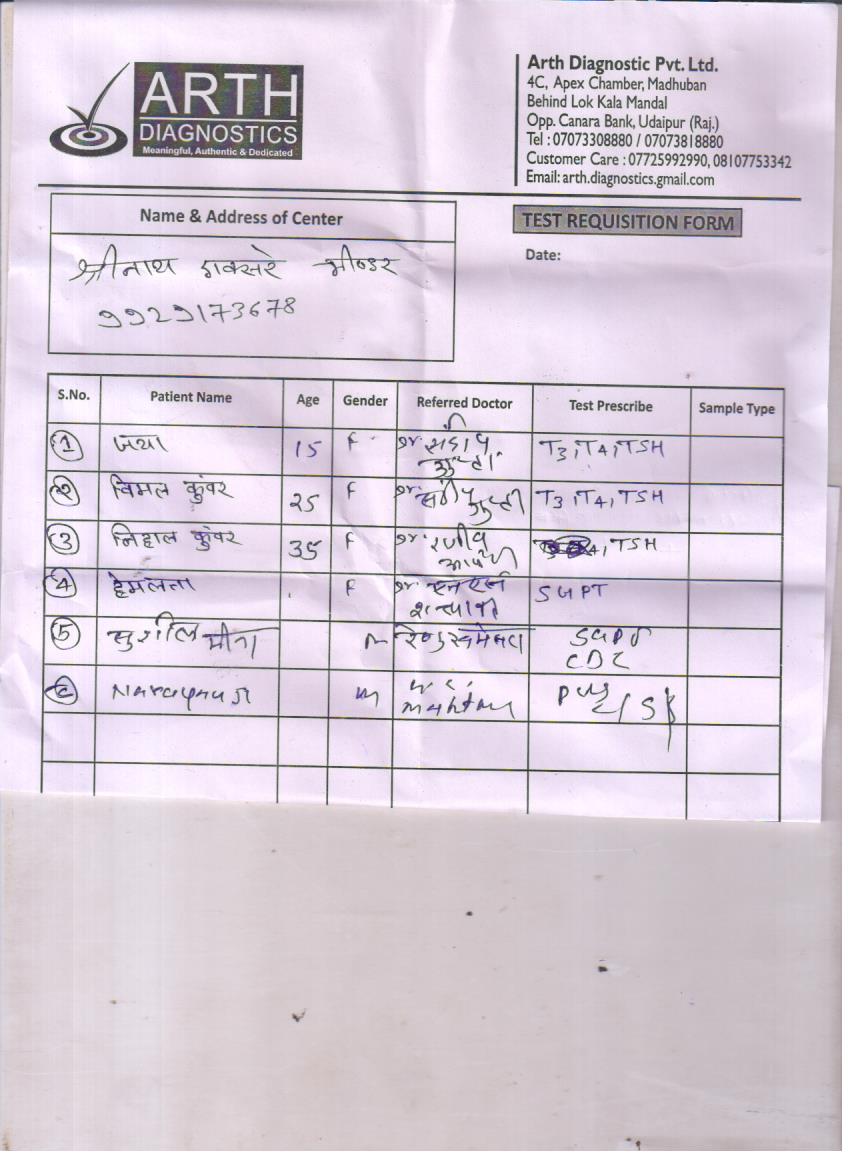 ARTH
DIAGNOSTICS
Meaningful, Authentic & Dedicated
Arth Diagnostic Pvt. Ltd.
4C, Apex Chamber, Madhuban
Behind Lok Kala Mandal
Opp. Canara Bank, Udaipur (Raj.)
Tel : 07073308880 / 07073818880
Customer Care : 07725992990, 08107753342
Email: arth.diagnostics.gmail.com
Name & Address of Center
TEST REQUISITION FORM
Date:
श्रीनाथ एक्सरे भीण्डर
9929173678
S.No. Patient Name Age Gender Referred Doctor Test Prescribe Sample Type
1 जया 15 F Dr. T3, T4, TSH
2 विमल कुंवर 25 F Dr. T3, T4, TSH
3 निहाल कुंवर 35 F Dr. TSH
4 हेमलता F Dr. SGPT
5 सुशील मीणा M SGPT
CBC
6 Narayan M